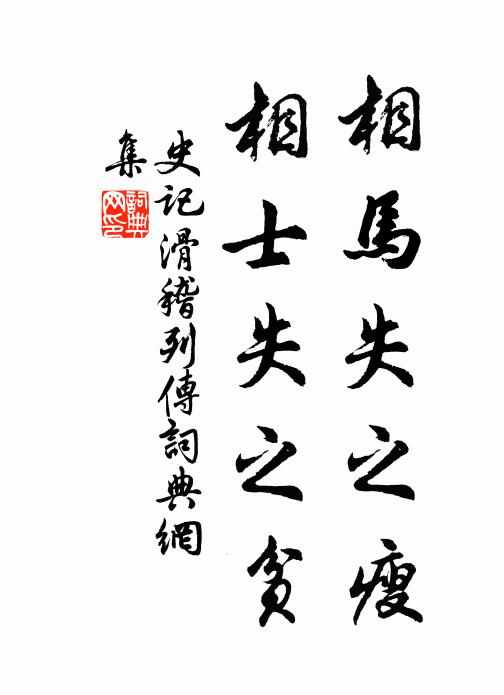 相馬失之瘦
相士失之貧
史記滑稽列傳詞典網
集
詞典
网印